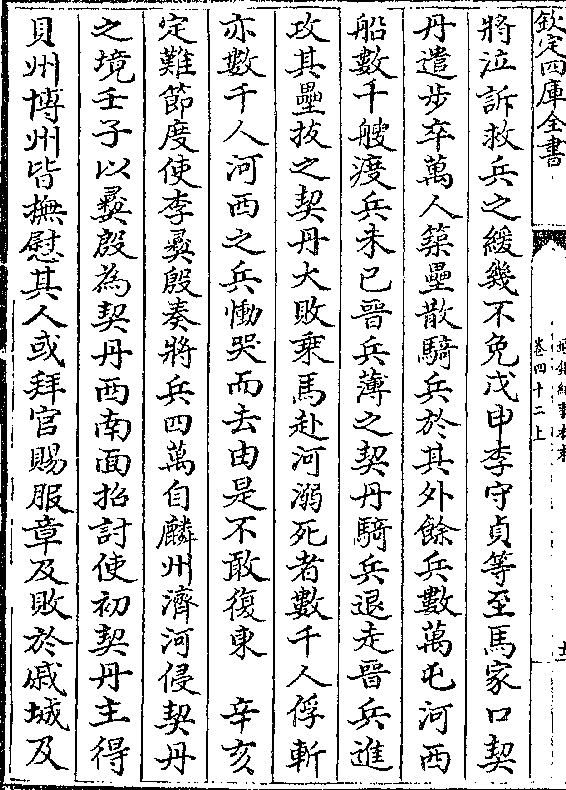 欽定四庫全書
卷四十二上
將泣訴救兵之緩幾不免戊申李守貞等至馬家口契
丹遣步卒萬人築壘散騎兵於其外餘兵數萬屯河西
船數十艘渡兵未已晉兵薄之契丹騎兵退走晉兵進
攻其壘拔之契丹大敗乘馬赴河溺死者數千人俘斬
亦數千人河西之兵慟哭而去由是不敢復東　辛亥
定難節度使李彝殷奏將兵四萬自麟州濟河侵契丹
之境壬子以彝殷為契丹西南面招討使初契丹主得
貝州博州皆撫慰其人或拜官賜服章及敗於戚城及